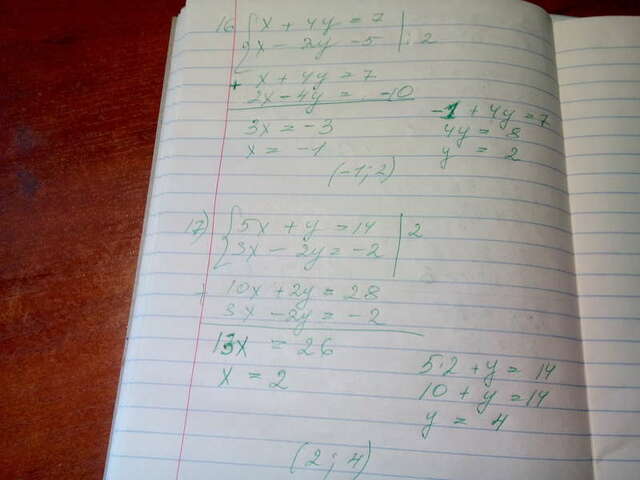 16 { x + 4y = 7
x - 2y - 5 | · 2
+ x + 4y = 7
2x - 4y = -10
3x = -3
x = -1
-1 + 4y = 7
4y = 8
y = 2
(-1; 2)
17) { 5x + y = 14 | 2
3x - 2y = -2
+ 10x + 2y = 28
3x - 2y = -2
13x = 26
x = 2
5·2 + y = 14
10 + y = 14
y = 4
(2; 4)